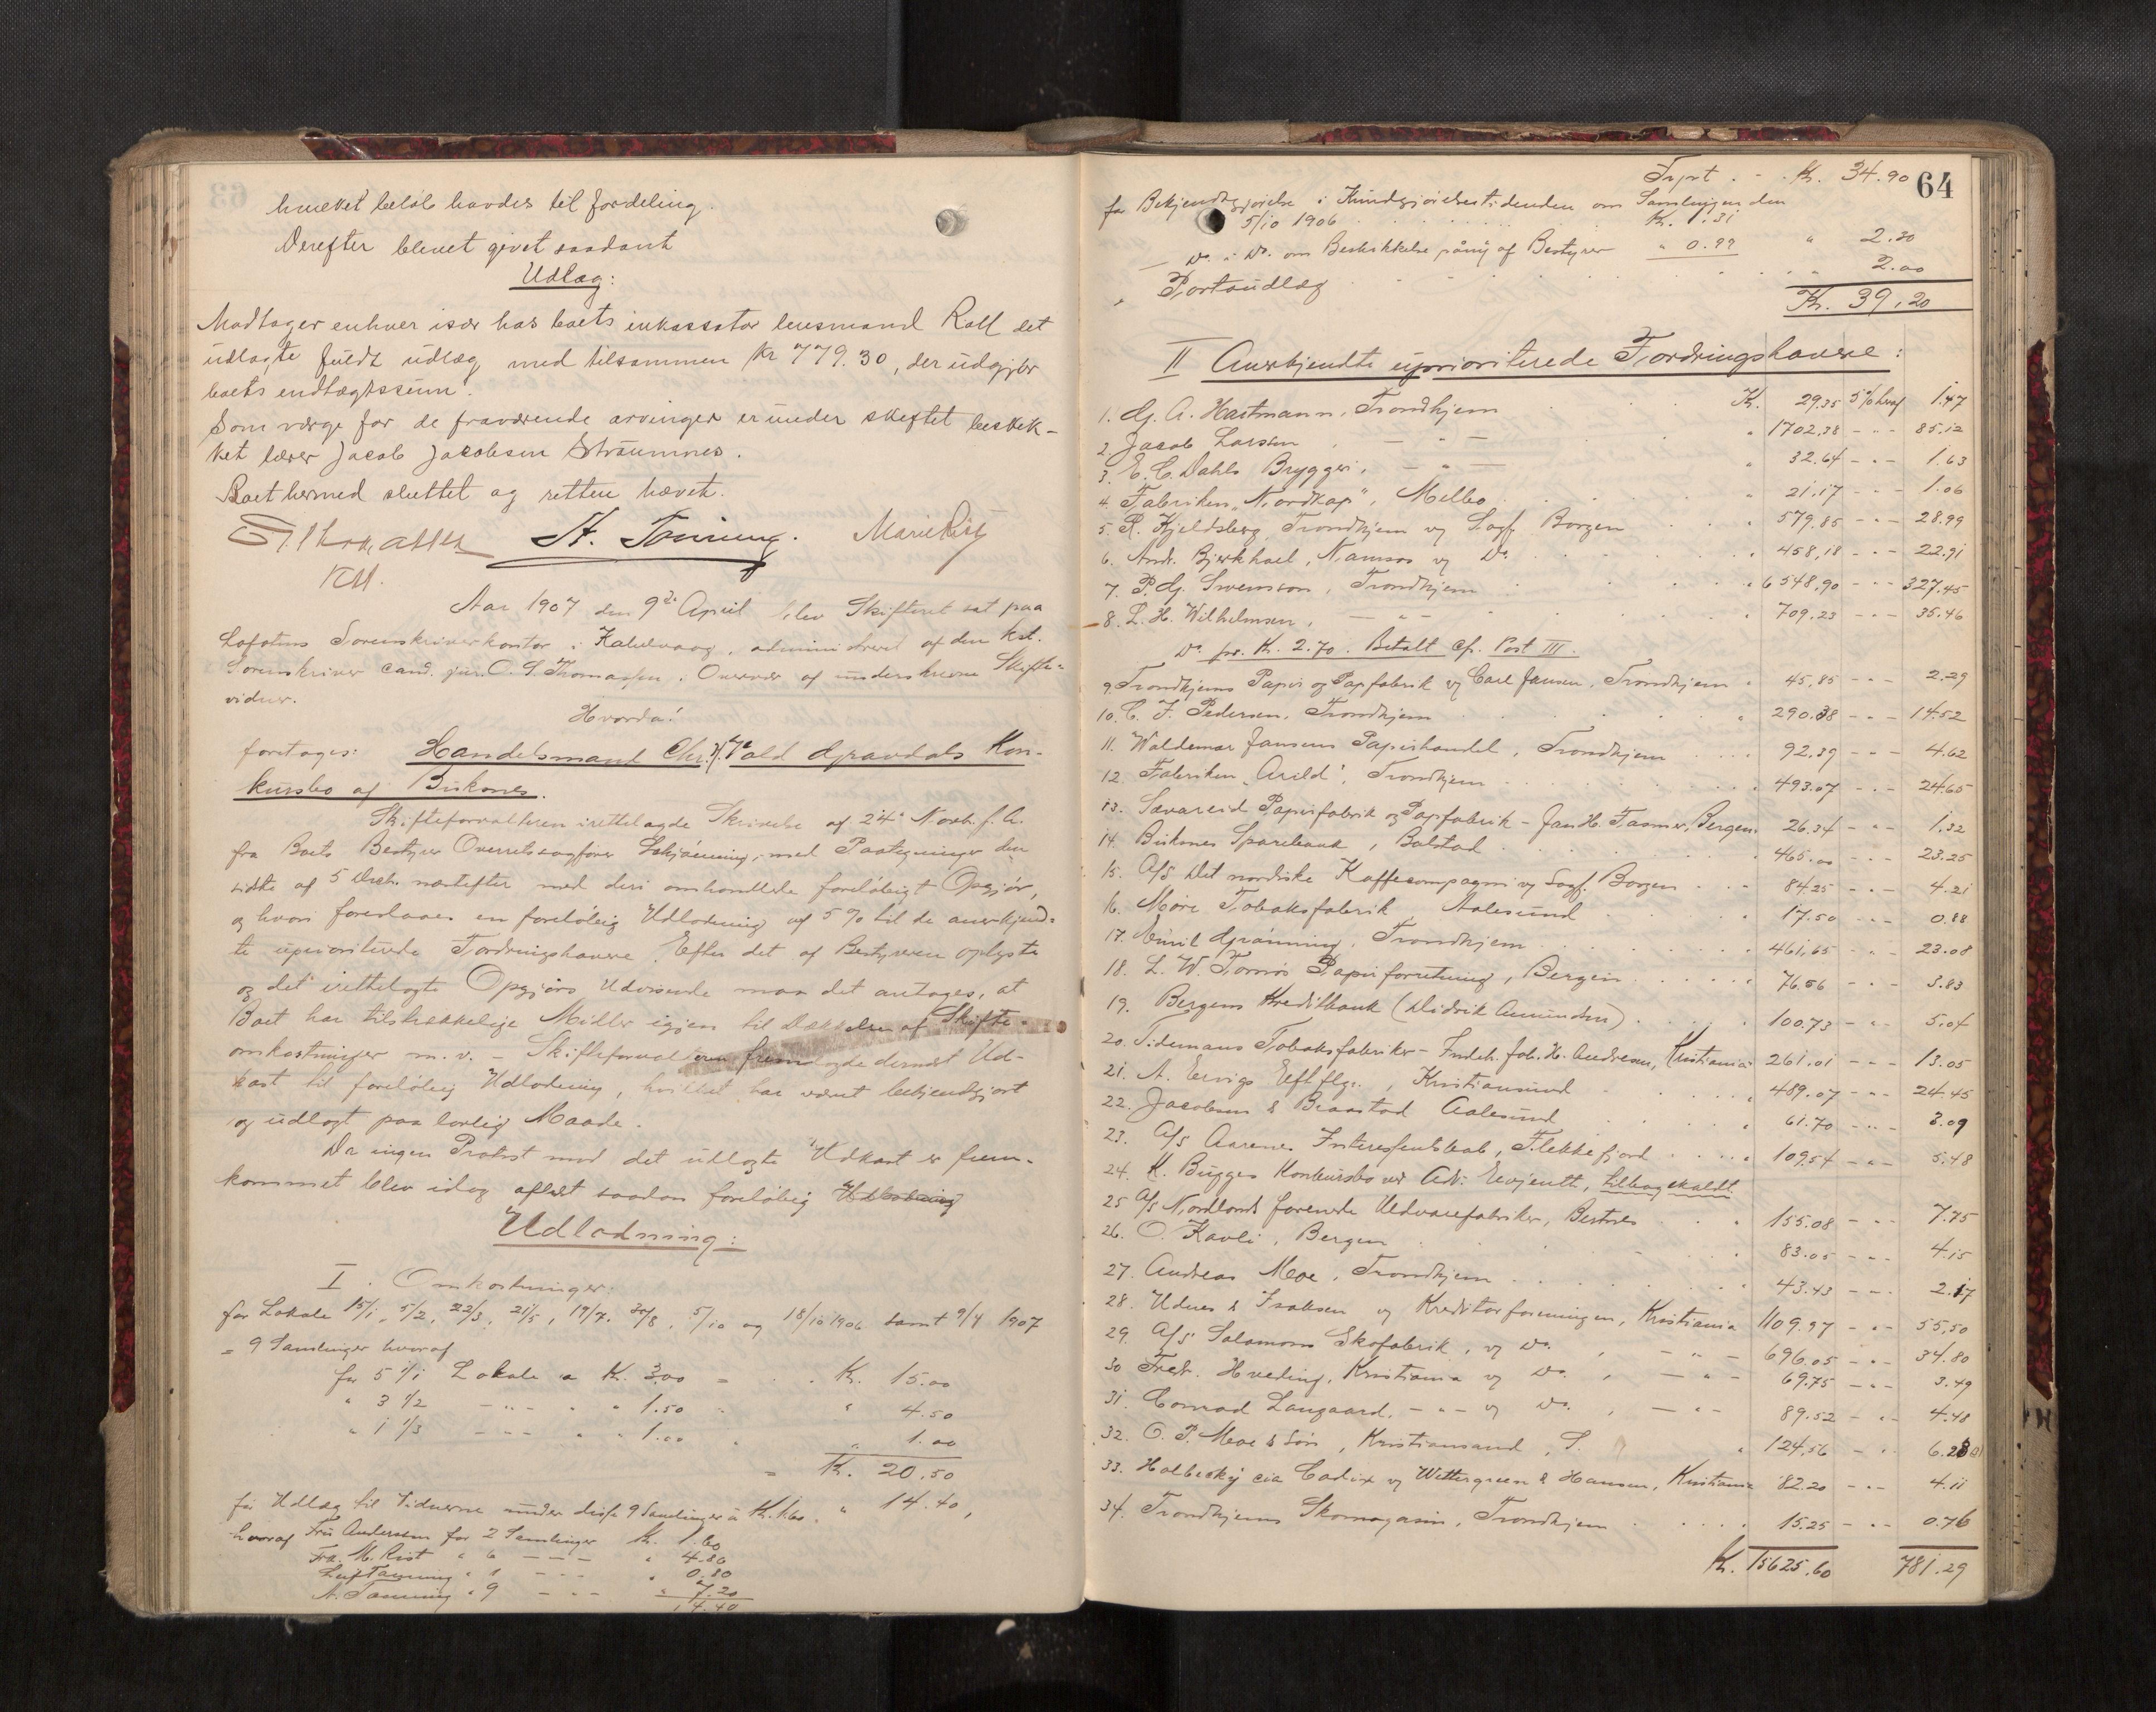 hvilket beløb havdes til fordeling.
Derefter blevet givet saadant
Udlæg:
Modtager enhver især hos boets inkassator lensmand Roll det
udlagte fuldt udlæg med tilsammen Kr 779.30, der udgjør
boets endtægtssum.
Som værge for de fraværende arvinger er under skiftet beskik-
ket lærer Jacob Jacobsen Straumnes.
Boet hermed sluttet og retten hævet.
A. Tønning. Marie Rist
Kst.
Aar 1907 den 9de April blev Skifteret sat paa
Lofotens Sorenskriverkontor i Kabelvaag, administreret af den kst.
Sorenskriver cand. jur. O. S. Thomassen. Overvær af underskrevne Skifte-
vidner.
Hvorda!
foretages: Handelsmand Chr. Vold Gravdals Kon-
kursbo af Buksnes.
Skifteforvalteren irettelagde Skrivelse af 24' Novb. f. A.
fra Boets Bestyrer Overretssagfører med Paategninger den
sidste af 5 Decb. næstefter med deri omhandlede foreløbigt Opgjør,
og hvori foreslaaes en foreløbig Udlodning af 5 % til de anerkjend-
te uprioriterede Fordringshavere. Efter det af Bestyreren oplyste
og det irettelagte Opgjørs Udvisende maa det antages, at
Boet har tilstrækkelige Midler igjen til Dækkelse af Skifte-
omkostninger m. v. - Skifteforvalteren fremlagde dernæst Ud-
kast til foreløbig Udlodning, hvilket har været bekjendtgjort
og udlagt paa lovlig Maade.
Da ingen Protest mod det udlagte Udkast er frem-
kommet blev idag afsluttet saadan foreløbig Udlodning
Udlodning:
I. Omkostninger:
for Lokale 15/1, 5/2, 22/3, 21/5, 17/7, 30/8, 5/10 og 18/10 1906 samt 9/4 1907
= 9 Samlinger hvoraf
for 5 1/1 Lokale a Kr. 3.00 = . . Kr. 15.00
" 3 1/2 - " - " " 1.50 " " 4.50
" 1 1/3 - - - " " 1.00 " 1.00
= Kr. 20.50
for Udlæg til Vidnerne under disse 9 Samlinger à Kr. 1.60. " 14.40,
hvoraf Fru Andersen for 2 Samlinger Kr. 1.60
Frk. M. Rist " 6 - - - " 4.80
Leif Tønning " 1 - - - " 0.80
A. Tønning " 9 - - - " 7.20
14.40
64
Trprt . - . Kr. 34.90
for Bekjendtgjørelse i Kundgjørelsestidenden om Samlingen den
5/10 1906 . . . . Kr. 1.31
- Do. i Do. om Beskikkelse påny af Bestyrer " 0.99 " 2.30
" Portoudlæg . . . . " 2.00
Kr. 39.20
II Anerkjendte uprioriterede Fordringshavere:
1. Hj. A. Hartmann, Trondhjem . . Kr. 29.35 5% heraf 1.47
2. Jacob Larssen, - " - " 1702.38 - " - 85.12
3. E. C. Dahls Bryggeri, - " - " 32.64 - " - 1.63
4. Fabriken "Nordkap", Melbo . . " 21.17 - " - 1.06
5. R. Kjeldsberg, Trondhjem og Sagf. Borgen . . 579.85 - " - 28.99
6. Andr. Bjerkhoel, Namsos og Do. . . " 458.18 - " - 22.91
7. P. Hj. Swensson, Trondhjem . . " 6548.90 - " - 327.45
8. L. H. Wilhelmsen, - " - " 709.23 - " - 35.46
Do. pr. Kr. 2.70. Betalt cfr. Post III.
9. Trondhjems Papir og Papfabrik og Carl Jansen, Trondhjem " 45.85 - " - 2.29
10. C. F. Pedersen, Trondhjem . . " 290.38 - " - 14.52
11. Waldemar Jansens Papirhandel, Trondhjem . . 92.39 - " - 4.62
12. Fabriken "Arild", Trondhjem . . " 493.07 - " - 24.65
13. Sævareid Papirfabrik og Papfabrik - Jan H. Fasmer, Bergen 26.34 - " - 1.32
14. Buksnes Sparebank, Balstad . . 465.00 - " - 23.25
15. A/S Det nordiske Kaffecompagni og Sagf. Borgen . . 84.25 - " - 4.21
16. Møre Tobaksfabrik, Aalesund . . " 17.50 - " - 0.88
17. Emil Grønning, Trondhjem . . " 461.65 - " - 23.08
18. L. W. Tornøs Papirforretning, Bergen . . " 76.56 - " - 3.83
19. Bergens Kreditbank (Didrik Amundsen) . . " 100.73 - " - 5.04
20. Tidemans Tobaksfabriker - Indeh. Joh. H. Andresen, Kristiania " 261.01 - " - 13.05
21. A. Ervigs Eftflgr., Kristiansund . . " 489.07 - " - 24.45
22. Jacobsen & Braastad Aalesund . . " 61.70 - " - 3.09
23. A/S Aarenes Interessentskab, Flekkefjord . . " 109.54 - " - 5.48
24. K. Bugges Konkursbo ved Adv. Evjenth, tilbagekaldt
25. A/S Nordlands forenede Uldvarefabriker, . . " 155.08 - " - 7.75
26. O. Kavli, Bergen . . " 83.05 - " - 4.15
27. Andreas Moe, Trondhjem . . " 43.43 - " - 2.17
28. Udnes & Isaksen og Kreditorforeningen, Kristiania 1109.97 - " - 55.50
29. A/S Salomons Skofabrik, og Do. , - " - 696.05 - " - 34.80
30. Fredr. Hveding, Kristiania og Do. , - " - 69.75 - " - 3.49
31. Conrad Langaard, - " - og Do. , - " - 89.52 - " - 4.48
32. O. P. Moe & Søn, Kristiansand, S. " 124.56 - " - 6.23
33. cia Cadix og Wettergreen & Hansen, Kristiania 82.20 - " - 4.11
34. Trondhjems Skomagasin, Trondhjem . . 15.25 - " - 0.76
Kr. 15625.60 781.29